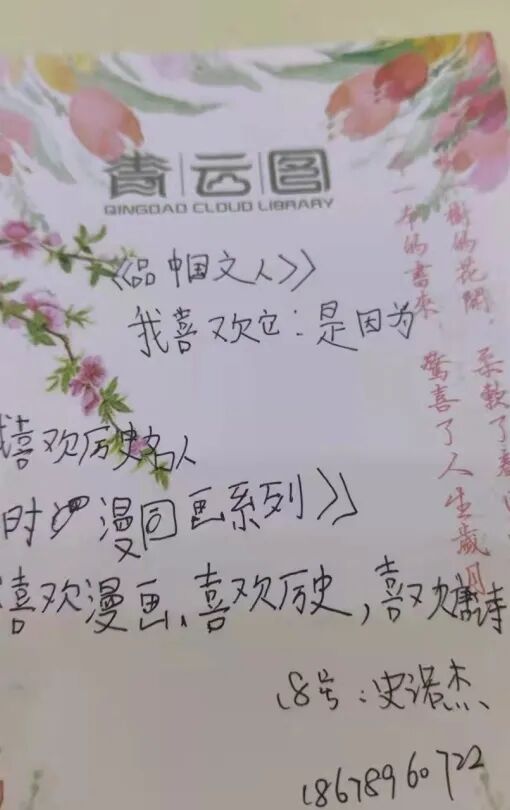 青云图
QINGDAO CLOUD LIBRARY
《品中国文人》
我喜欢它:是因为
喜欢历史名人
时 漫回画系列》
喜欢漫画、喜欢历史,喜欢唐诗
18号:史诺杰
18678960722
树的花開,柔軟了春
一本的書來,驚喜了人生歲月